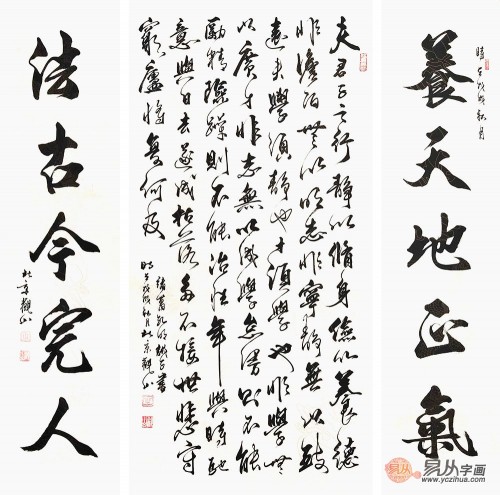 養天地正氣
時在戊戌秋月
夫君子之行靜以脩身儉以養德
非澹泊無以明志非寧靜無以致
遠夫學須靜也才須學也非學無
以廣才非志無以成學怠慢則不能
勵精險躁則不能冶性年與時馳
意與日去遂成枯落多不接世悲守
窮廬將復何及
諸葛孔明誡子書
時在戊戌秋月北京觀山
法古今完人
北京觀山
易从字画
www.yczihua.com